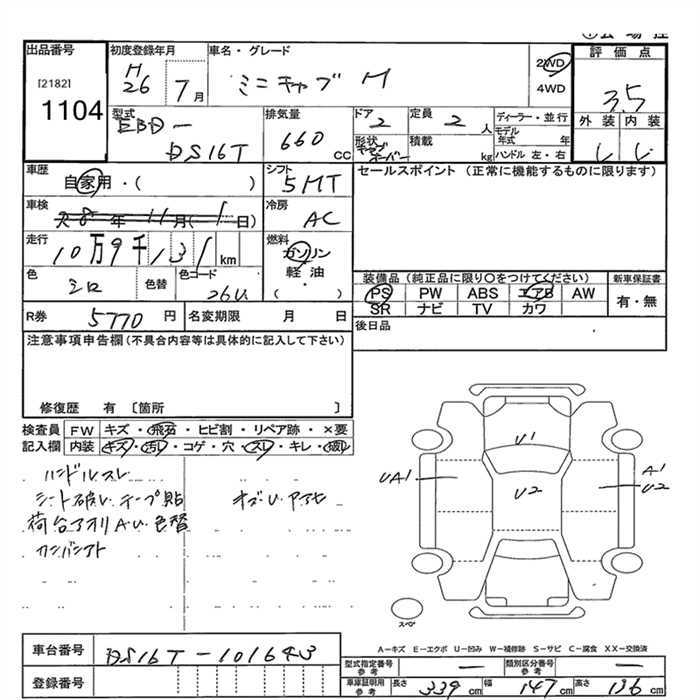 出品番号 初度登録年月 車名・グレード 評価点
[2182] H26 7月 ミニキャブ M 2WD 4WD 3.5
1104
型式 排気量 ドア 定員 ディーラー・並行 外装 内装
EBD- 660cc 2 2人 モデル年式 年
DS16T 形状 積載 kg ハンドル 左・右
車歴 シフト セールスポイント (正常に機能するものに限ります)
自家用・( ) 5MT
車検 冷房
年11月(1日) AC
走行 燃料
10万9千131km ガソリン
色 色替 色コード 軽油・
シロ 26U ( )
装備品 (純正品に限り〇をつけてください) 新車保証書
PS PW ABS エアB AW 有・無
SR ナビ TV カワ
R券 5770円 名変期限 月 日 後日品
注意事項申告欄(不具合内容等は具体的に記入して下さい)
修復歴 有 [箇所 ]
検査員 FW キズ・飛石・ヒビ割・リペア跡・×要
記入欄 内装 キズ・汚レ・コゲ・穴・スレ・キレ・破レ
ハンドルスレ
シート破レ テープ貼
荷台アオリA・U 色替
カンバンアト
U1
UA1 U2 A1
U2
スペア
A-キズ E-エクボ U-凹み W-補修跡 S-サビ C-腐食 XX-交換済
車台番号 DS16T-101643
登録番号
型式指定番号 参考 — 類別区分番号 参考 —
車庫証明用 参考 長さ 339cm 幅 147cm 高さ 136cm